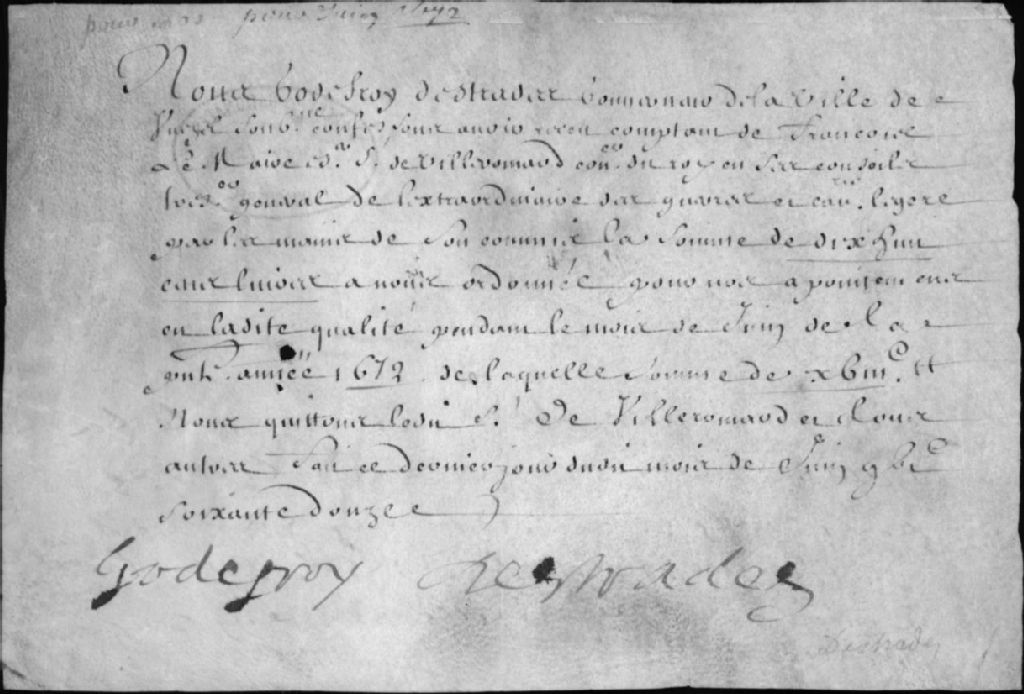 pour juin 1672
Nous Godefroy destrades Gouverneur de la Ville de
Wesel soub.ne confessons avoir receu comptant de Francois
le Maire es.r S.r de Villeromard con.er du roy en ses conseils
tres.er general de lextraordinaire des guerres et cav.rie legere
par les mains de son commis la somme de dix huit
cens livres a nous ordonnée pour nos apointemens
en ladite qualité pendant le mois de Juin de la
pnte. année 1672 de laquelle somme de xviii.C tt
Nous quittons ledit S.r De Villeromard et tous
autres Fait ce dernier jour dudit mois de Juin
soixante douze
Godefroy destrades
Destrades